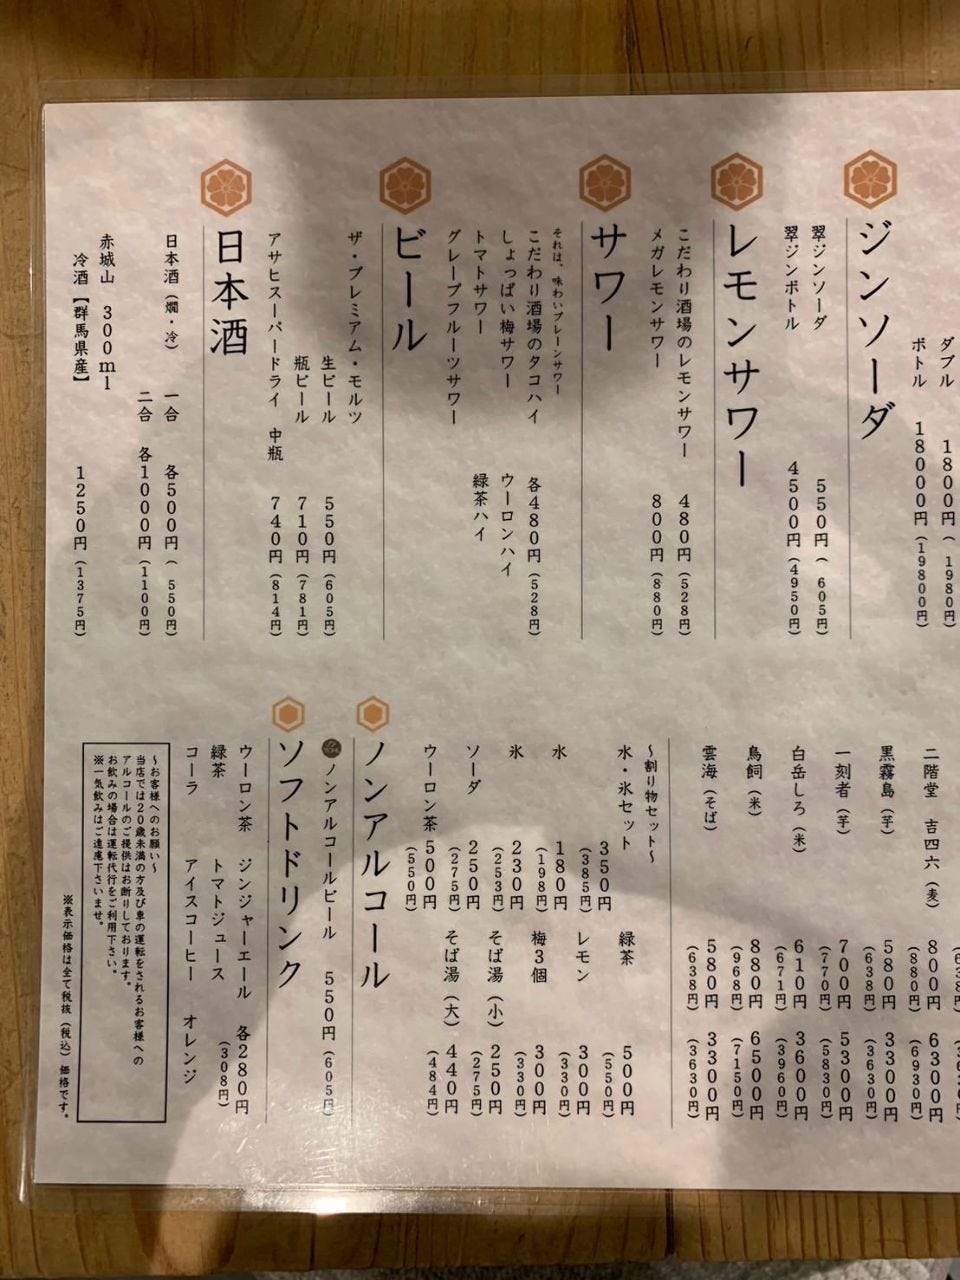 ダブル 1800円（1980円）
ボトル 18000円（19800円）
ジンソーダ
翠ジンソーダ 550円（605円）
翠ジンボトル 4500円（4950円）
レモンサワー
こだわり酒場のレモンサワー 480円（528円）
メガレモンサワー 800円（880円）
サワー
それは、味わいプレーンサワー
こだわり酒場のタコハイ 各480円（528円）
しょっぱい梅サワー ウーロンハイ
トマトサワー 緑茶ハイ
グレープフルーツサワー
ビール
ザ・プレミアム・モルツ
生ビール 550円（605円）
瓶ビール 710円（781円）
アサヒスーパードライ 中瓶 740円（814円）
日本酒
日本酒（燗・冷） 一合 各500円（550円）
二合 各1000円（1100円）
赤城山 300ml
冷酒【群馬県産】 1250円（1375円）
二階堂 吉四六（麦） 800円（880円） 6300円（6930円）
黒霧島（芋） 580円（638円） 3300円（3630円）
一刻者（芋） 700円（770円） 5300円（5830円）
白岳しろ（米） 610円（671円） 3600円（3960円）
鳥飼（米） 880円（968円） 6500円（7150円）
雲海（そば） 580円（638円） 3300円（3630円）
〜割り物セット〜
水・氷セット 350円（385円） 緑茶 500円（550円）
水 180円（198円） レモン 300円（330円）
氷 230円（253円） 梅3個 300円（330円）
ソーダ 250円（275円） そば湯（小） 250円（275円）
ウーロン茶 500円（550円） そば湯（大） 440円（484円）
ノンアルコール
ノンアルコールビール 550円（605円）
ソフトドリンク
ウーロン茶 ジンジャーエール 各280円（308円）
緑茶 トマトジュース
コーラ アイスコーヒー オレンジ
〜お客様へのお願い〜
当店では20歳未満の方及び車の運転をされるお客様への
アルコールのご提供はお断りしております。
お飲みの場合は運転代行をご利用下さい。
※一気飲みはご遠慮下さいませ。
※表示価格は全て税抜（税込）価格です。